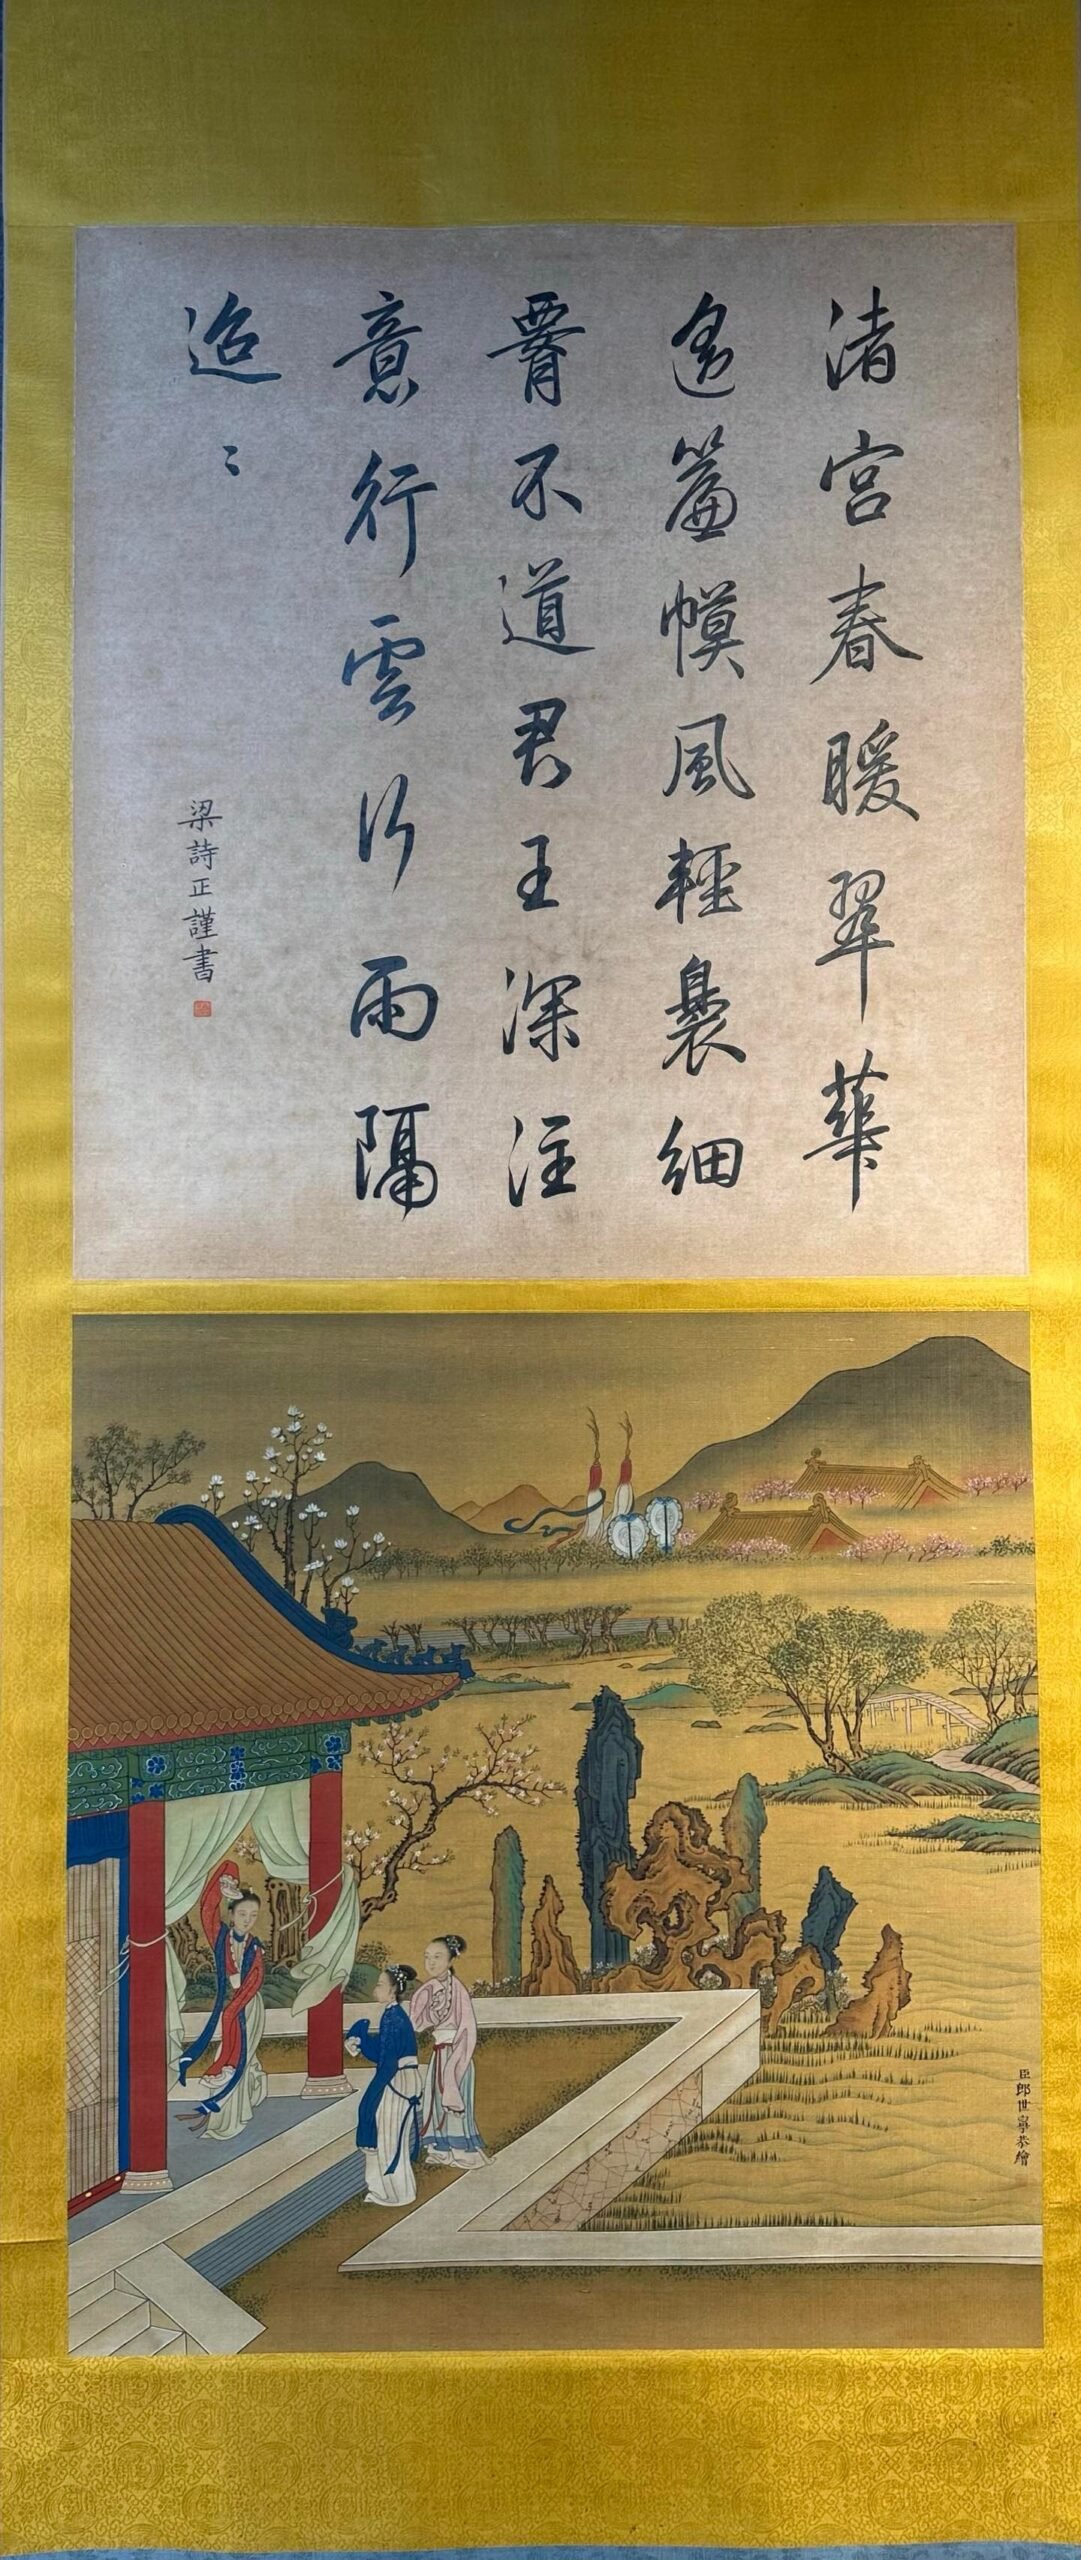 渚宮春暖翠華
遙簾幙風輕裊細
腰不道君王深注
意行雲行雨隔
迢〻
梁詩正謹書
臣郎世寧恭繪